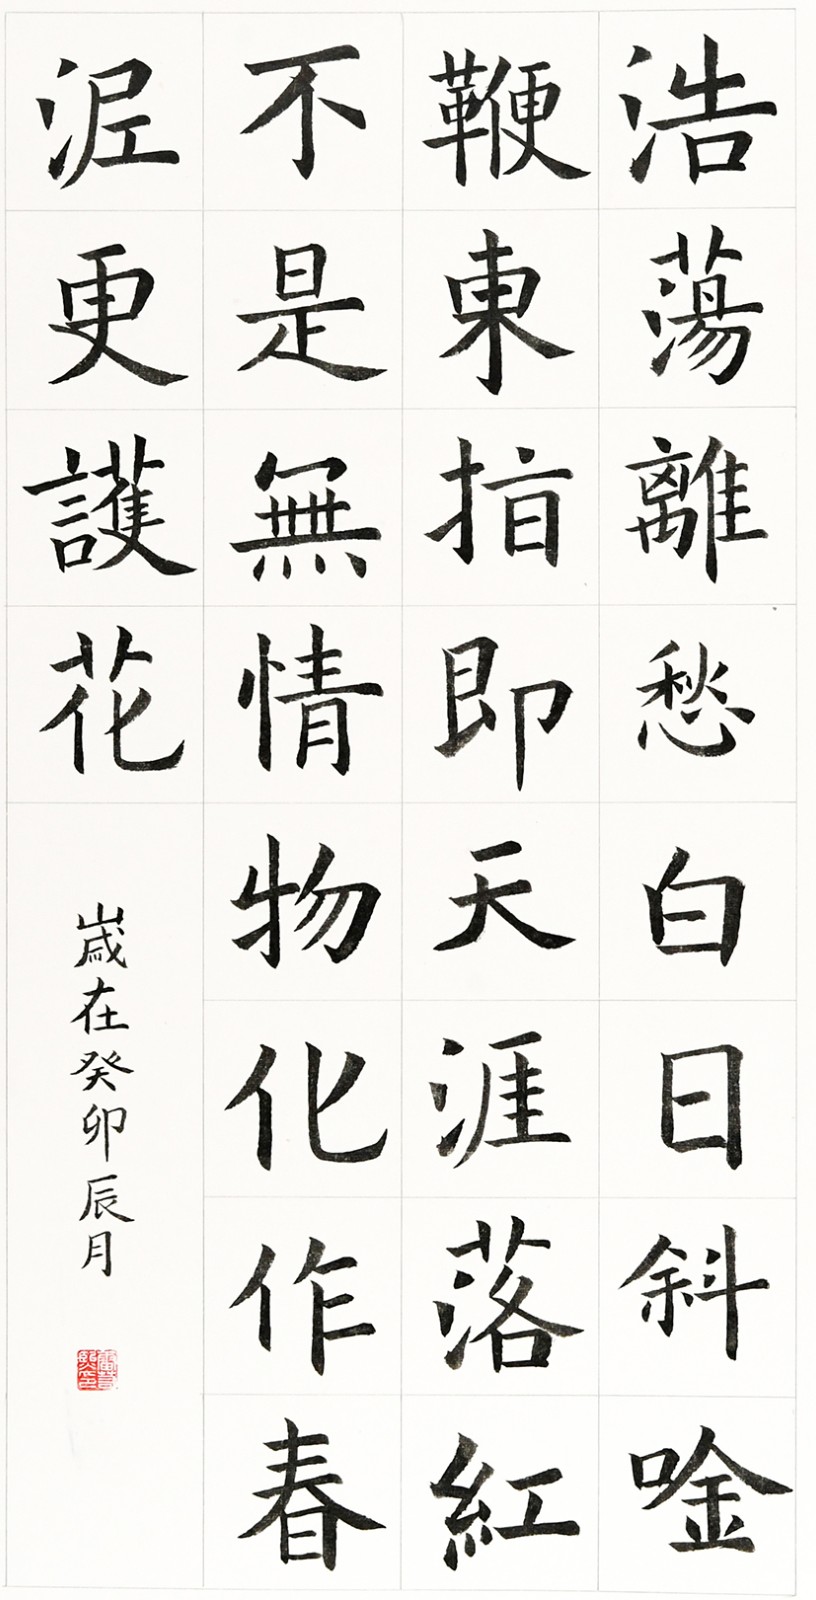 浩蕩離愁白日斜唫
鞭東指即天涯落紅
不是無情物化作春
泥更護花
歲在癸卯辰月